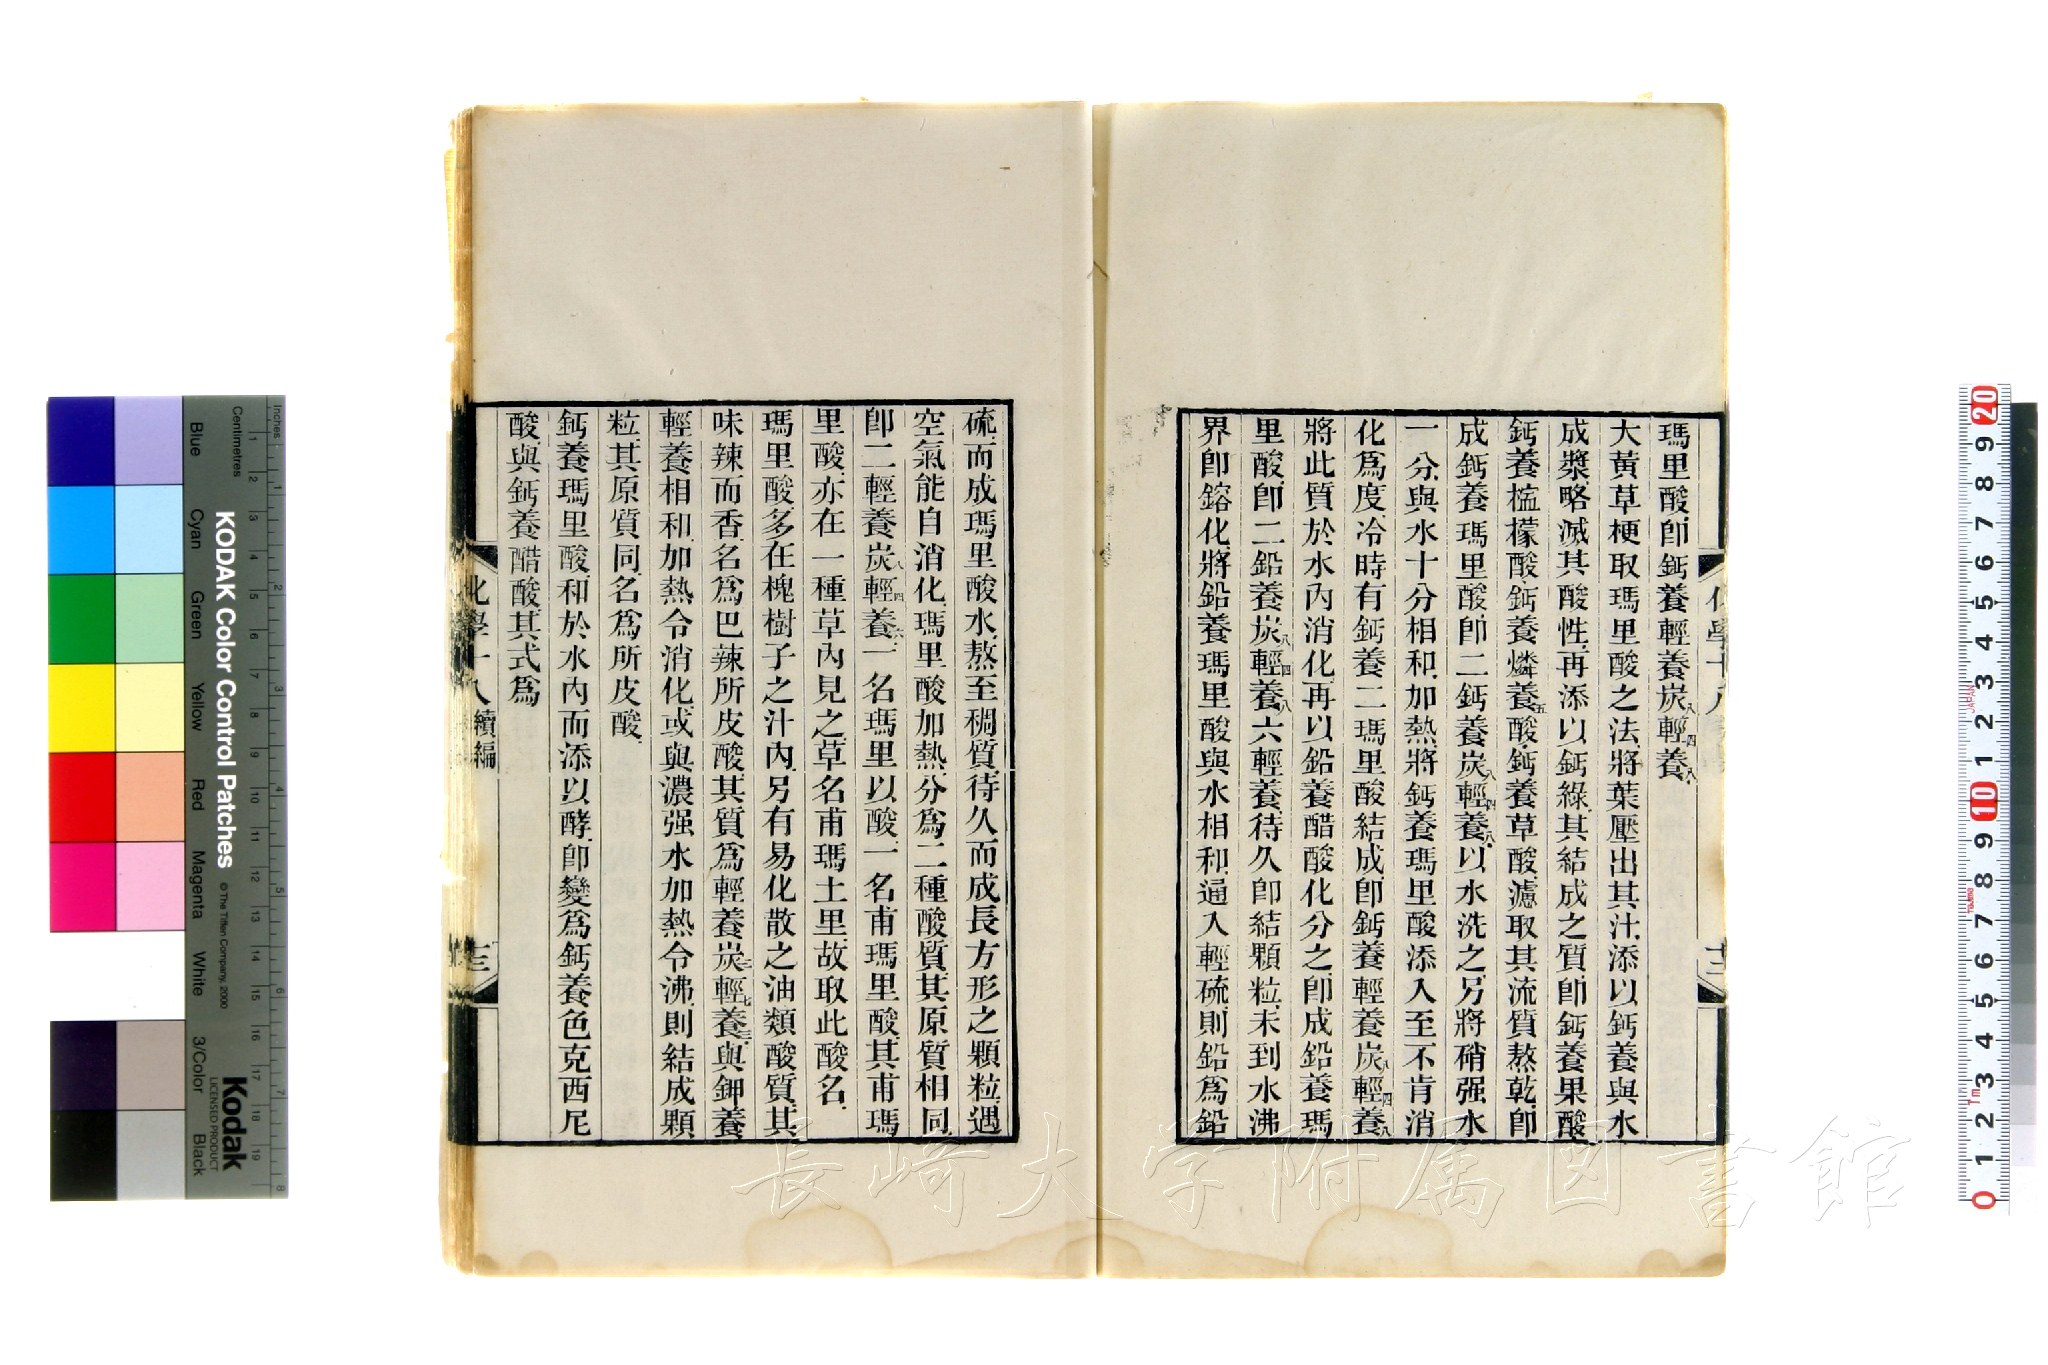 瑪里酸卽鈣養輕養炭八輕四養八
大黃草梗取瑪里酸之法將葉壓出其汁添以鈣養與水
成漿略滅其酸性再添以鈣綠其結成之質卽鈣養果酸
鈣養檻檬酸鈣養燐養五酸鈣養草酸濾取其流質熬乾卽
成鈣養瑪里酸卽二鈣養炭八輕四養八以水洗之另將硝强水
一分與水十分相和加熱將鈣養瑪里酸添入至不肯消
化爲度冷時有鈣養二瑪里酸結成卽鈣養輕養炭八輕四養八
將此質於水內消化再以鉛養醋酸化分之卽成鉛養瑪
里酸卽二鉛養炭八輕四養八六輕養待久卽結顆粒未到水沸
界卽鎔化將鉛養瑪里酸與水相和通入輕硫則鉛爲鉛
硫而成瑪里酸水熬至稠質待久而成長方形之顆粒遇
空氣能自消化瑪里酸加熱分爲二種酸質其原質相同
卽二輕養炭八輕四養六一名瑪里以酸一名甫瑪里酸其甫瑪
里酸亦在一種草內見之草名甫瑪土里故取此酸名
瑪里酸多在槐樹子之汁內另有易化散之油類酸質其
味辣而香名爲巴辣所皮酸其質爲輕養炭十二輕七養三與鉀養
輕養相和加熱令消化或與濃强水加熱令沸則結成顆
粒其原質同名爲所皮酸
鈣養瑪里酸和於水內而添以酵卽變爲鈣養色克西尼
酸與鈣養醋酸其式爲
化學十八續編
三
長崎大学附属図書館
KODAK Color Control Patches
©The Tiffen Company, 2000
Kodak
LICENSED PRODUCT
Inches
Centimetres
Blue
Cyan
Green
Yellow
Red
Magenta
White
3/Color
Black